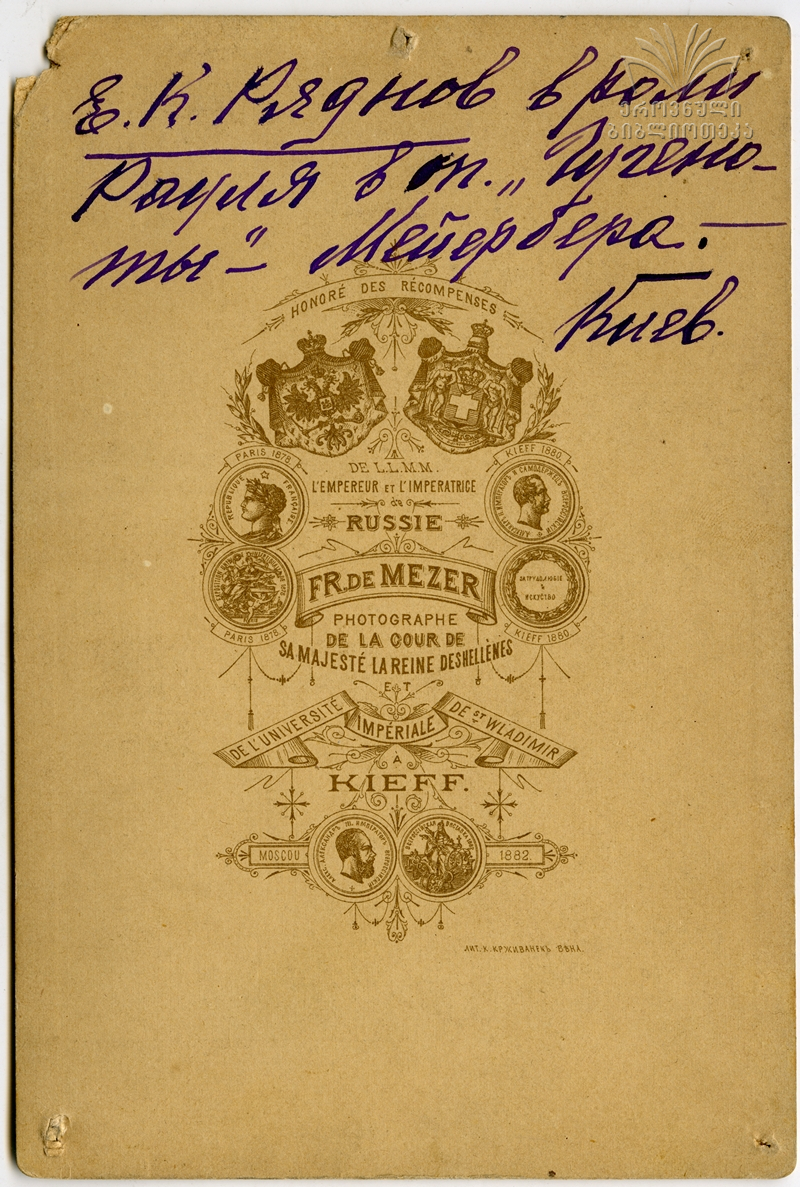 Е. К. Ряднов в роли
Рауля в оп. „Гугено-
ты" – Мейербера. –
Киев.
ეროვნული
ბიბლიოთეკა
HONORÉ DES RÉCOMPENSES
PARIS 1878
KIEFF 1880
RÉPUBLIQUE FRANÇAISE
DE L.L.M.M.
L'EMPEREUR ET L'IMPERATRICE
de
RUSSIE
FR. DE MEZER
ЗА ТРУДОЛЮБIЕ
И
ИСКУСТВО
PARIS 1878
KIEFF 1880
PHOTOGRAPHE
DE LA COUR DE
SA MAJESTÉ LA REINE DES HELLÈNES
ET
DE L'UNIVERSITÉ
IMPÉRIALE
DE ST WLADIMIR
A
KIEFF.
MOSCOU
1882.
ЛИТ. К. КРЖИВАНЕКЪ ВѢНА.